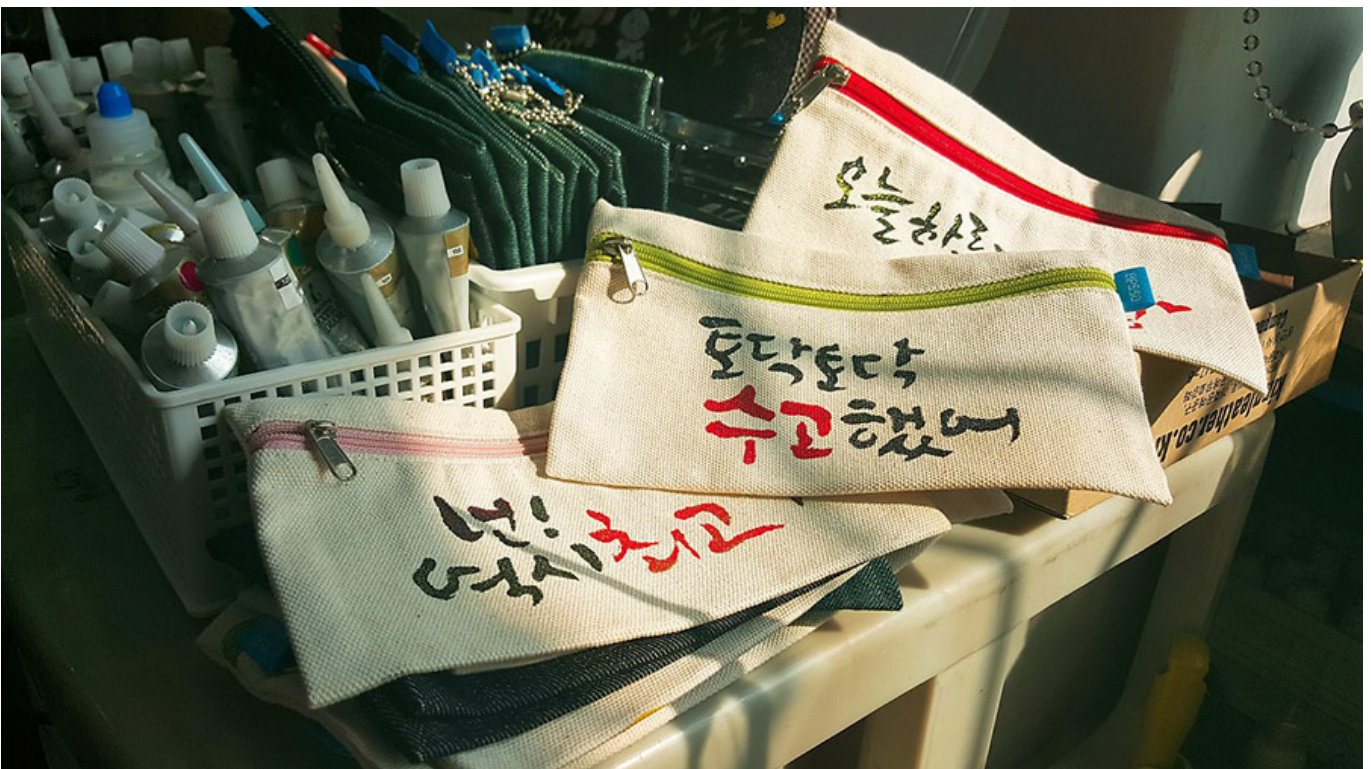 오늘하루,
토닥토닥
수고했어
넌!
역시최고
leather.co.kr